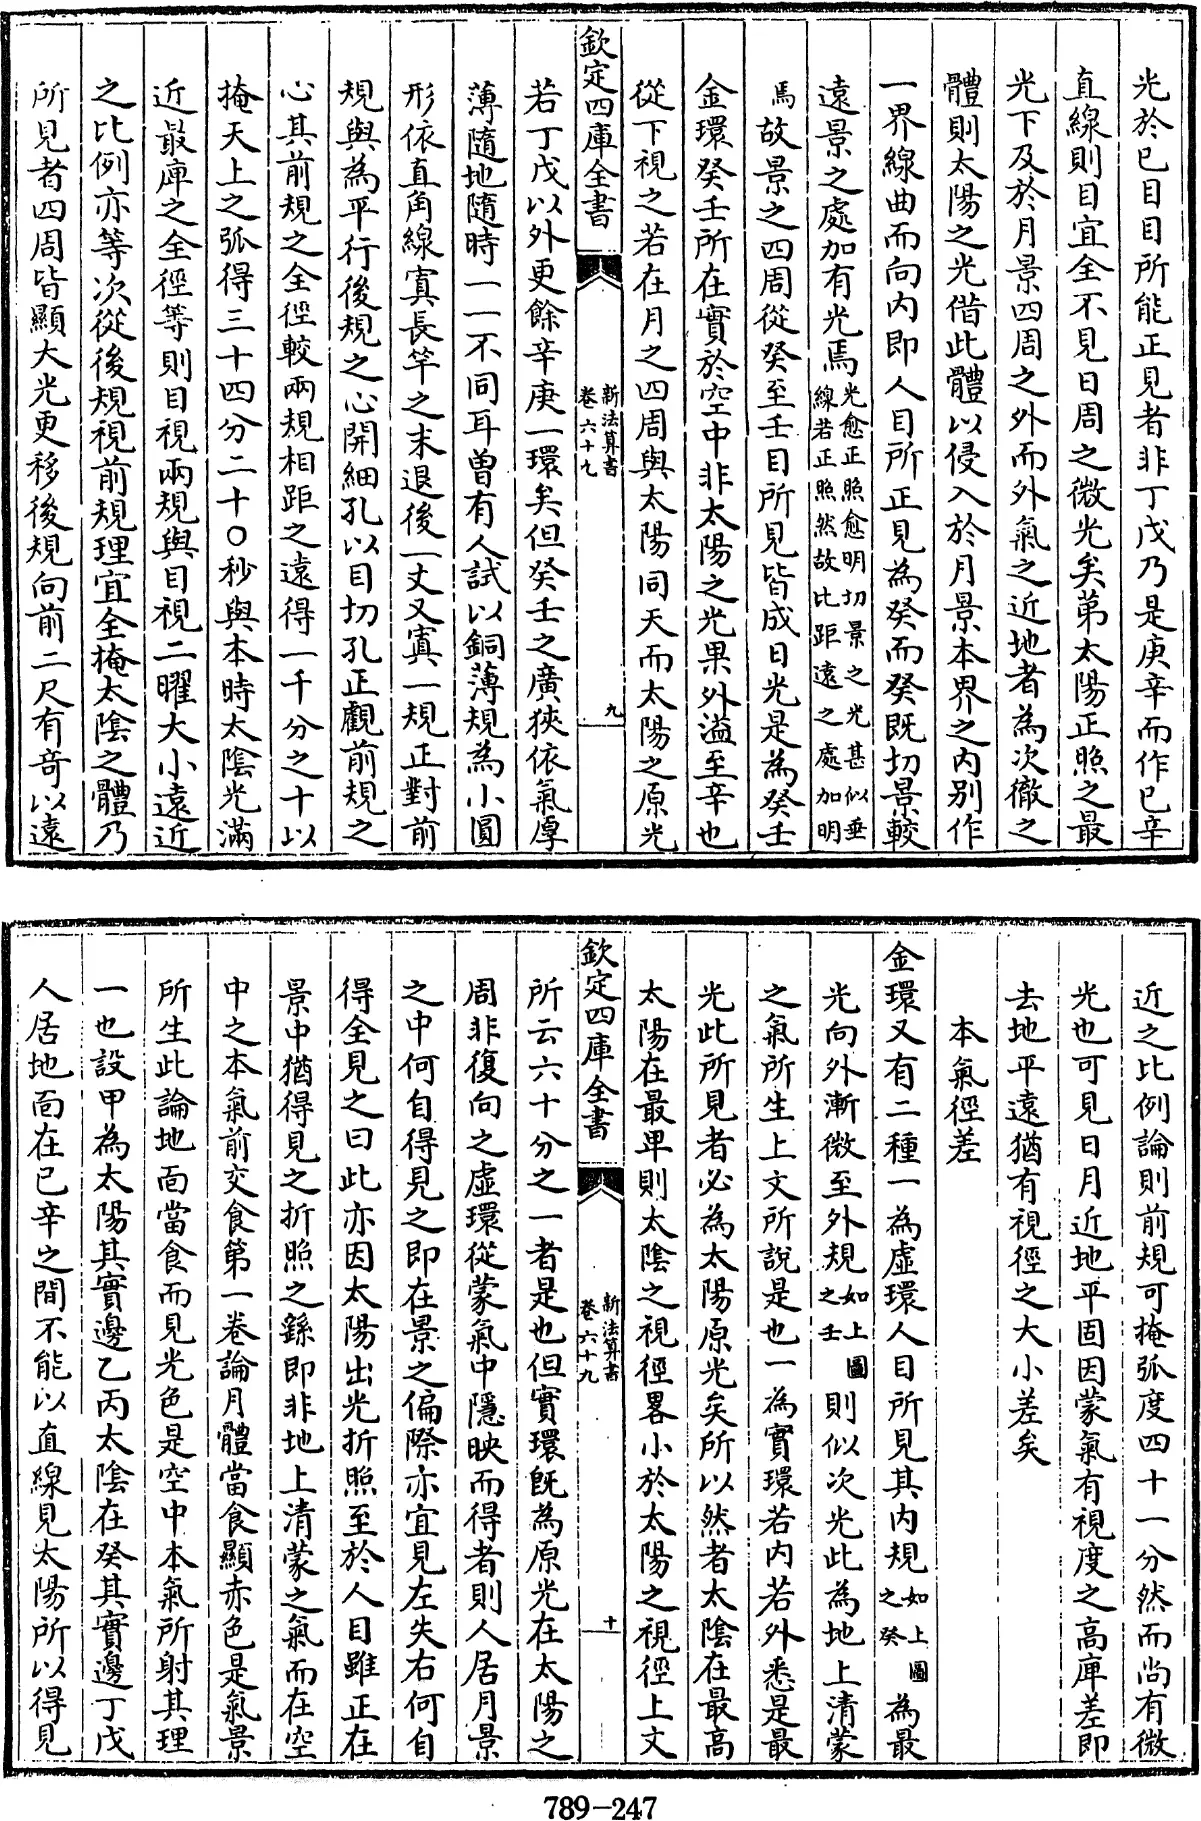 光於已目目所能正見者非丁戊乃是庚辛而作已辛
直線則目宜全不見日周之微光矣第太陽正照之最
光下及於月景四周之外而外氣之近地者為次徹之
體則太陽之光借此體以侵入於月景本界之內別作
一界線曲而向內即人目所正見為癸而癸既切景較
遠景之處加有光焉光愈正照愈明切景之光甚似垂線若正照然故比距遠之處加明
焉故景之四周從癸至壬目所見皆成日光是為癸壬
金環癸壬所在實於空中非太陽之光果外溢至辛也
從下視之若在月之四周與太陽同天而太陽之原光
欽定四庫全書
新法算書
卷六十九
九
若丁戊以外更餘辛庚一環矣但癸壬之廣狹依氣厚
薄隨地隨時一一不同耳曾有人試以銅薄規為小圓
形依直角線寘長竿之末退後一丈又寘一規正對前
規與為平行後規之心開細孔以目切孔正觀前規之
心其前規之全徑較兩規相距之遠得一千分之十以
掩天上之弧得三十四分二十〇秒與本時太陰光滿
近最庳之全徑等則目視兩規與目視二曜大小遠近
之比例亦等次從後規視前規理宜全掩太陰之體乃
所見者四周皆顯大光更移後規向前二尺有奇以遠
近之比例論則前規可掩弧度四十一分然而尚有微
光也可見日月近地平固因蒙氣有視度之高庳差即
去地平遠猶有視徑之大小差矣
本氣徑差
金環又有二種一為虛環人目所見其內規如上圖之癸為最
光向外漸微至外規如上圖之壬則似次光此為地上清蒙
之氣所生上文所說是也一為實環若內若外悉是最
光此所見者必為太陽原光矣所以然者太陰在最高
太陽在最卑則太陰之視徑畧小於太陽之視徑上文
欽定四庫全書
新法算書
卷六十九
十
所云六十分之一者是也但實環旣為原光在太陽之
周非復向之虛環從蒙氣中隱映而得者則人居月景
之中何自得見之即在景之偏際亦宜見左失右何自
得全見之曰此亦因太陽出光折照至於人目雖正在
景中猶得見之折照之繇即非地上清蒙之氣而在空
中之本氣前交食第一卷論月體當食顯赤色是氣景
所生此論地面當食而見光色是空中本氣所射其理
一也設甲為太陽其實邊乙丙太陰在癸其實邊丁戊
人居地面在已辛之間不能以直線見太陽所以得見
789-247